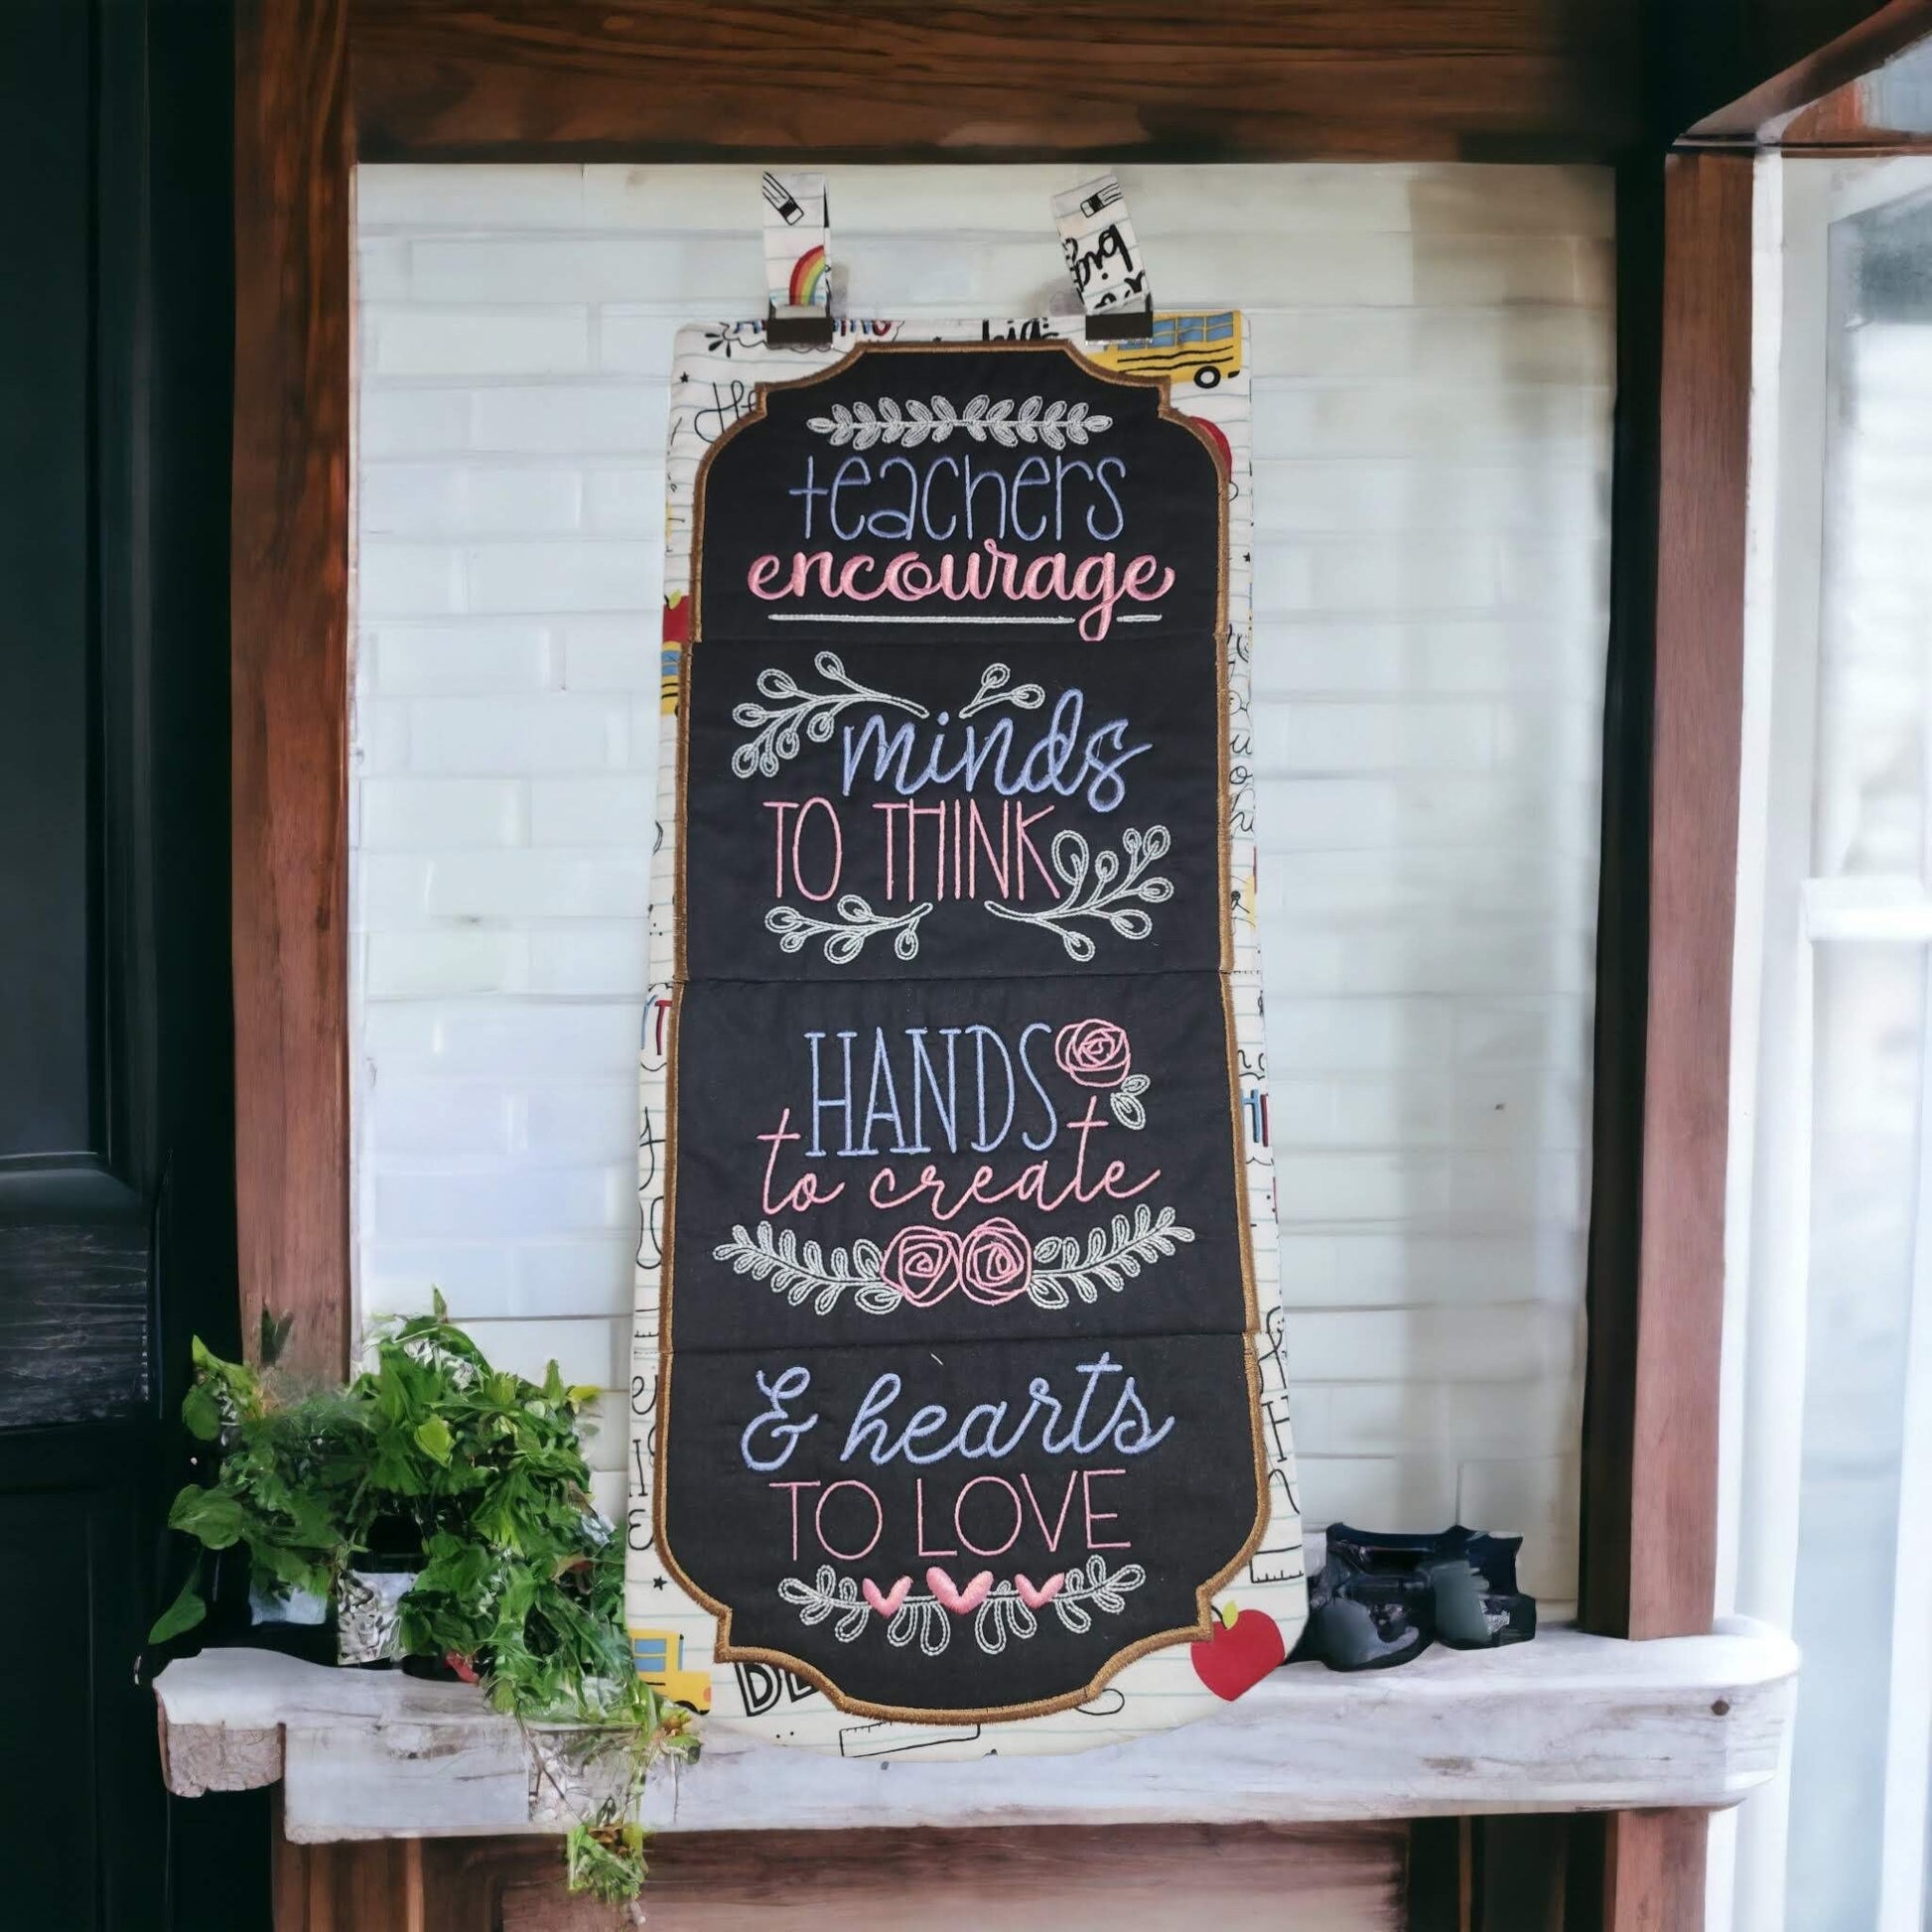 big
teachers
encourage
minds
TO THINK
HANDS
to create
& hearts
TO LOVE